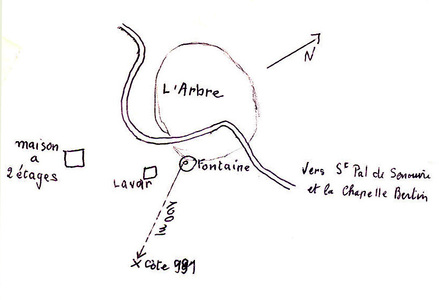 N
L'Arbre
maison
a
2 étages
Lavoir
Fontaine
Vers St Pal de Senouire
et la Chapelle Bertin
m
côte 991